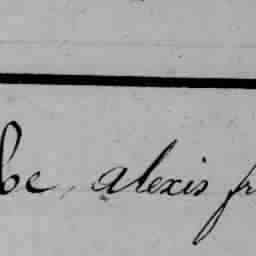 be, alexis fr